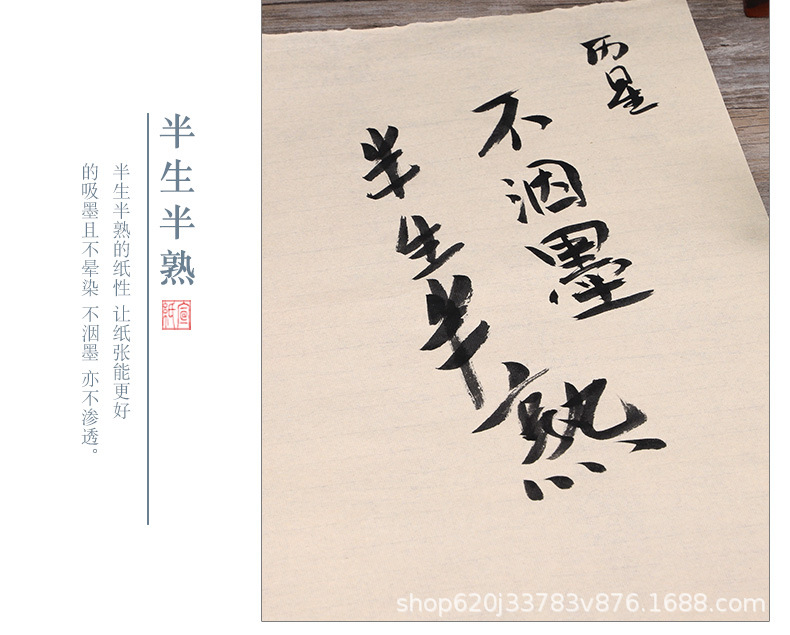 半生半熟
宣纸
半生半熟的纸性 让纸张能更好
的吸墨且不晕染 不洇墨 亦不渗透。
不洇墨
半生半熟
shop620j33783v876.1688.com